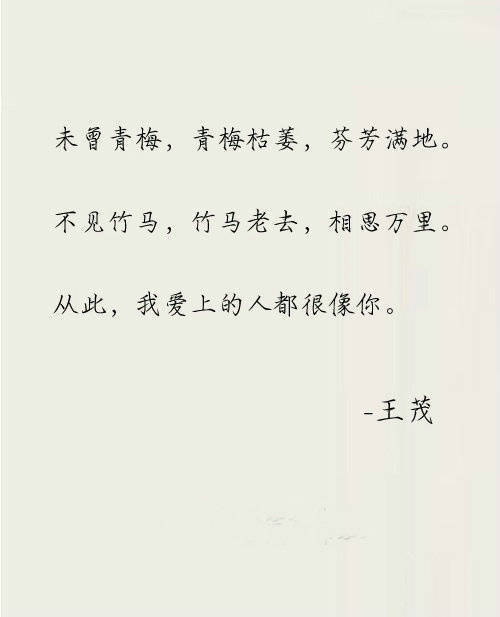 未曾青梅，青梅枯萎，芬芳满地。
不见竹马，竹马老去，相思万里。
从此，我爱上的人都很像你。
-王茂